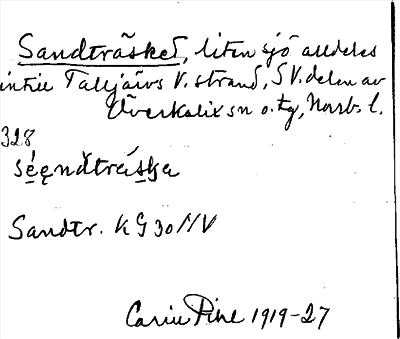 Sandträsket, liten sjö alldeles
intill Talljärvs V. strand, SV. delen av
Överkalix sn o. tg, Norrb. l.
328
séęnd̆tráska
Sandtr. KG 30 NV
Carin Pihl 1919-27